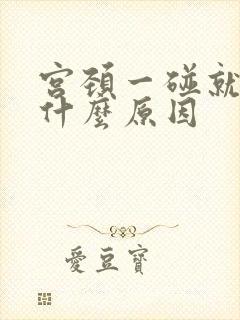 宮頚一碰就
什麼原因
愛豆寶